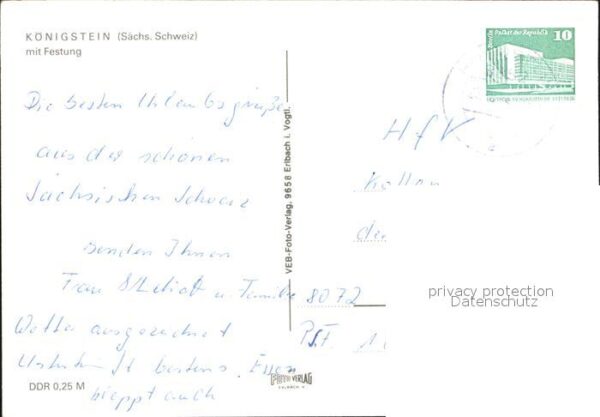 KÖNIGSTEIN (Sächs. Schweiz)
mit Festung
Die besten Urlaubsgrüße
aus der schönen
Sächsischen Schweiz
senden Ihnen
Frau u. Familie
Wetter ausgezeichnet
Unterkunft bestens. Essen
klappt auch
DDR 0,25 M
VEB-Foto-Verlag, 9658 Erlbach i. Vogtl.
FOTO VERLAG
ERLBACH V.
Berlin Palast der Republik
10
HfV
8072
PSF 1
privacy protection
Datenschutz